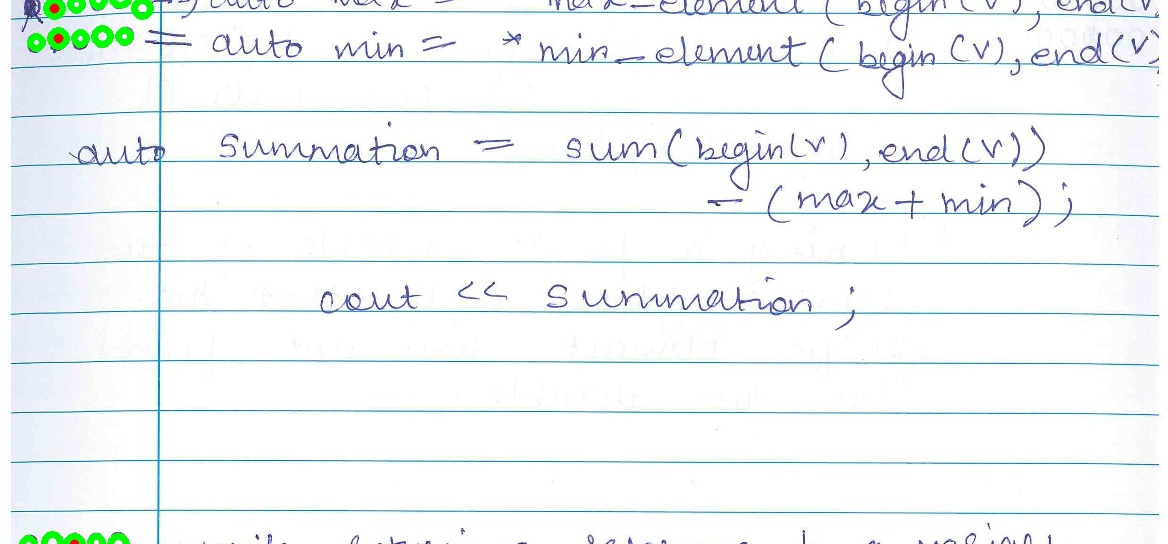 auto max = max_element ( begin (v), end(v
= auto min = * min_element ( begin (v), end(v)
auto summation = sum ( begin(v), end(v))
- (max + min);
cout << summation ;